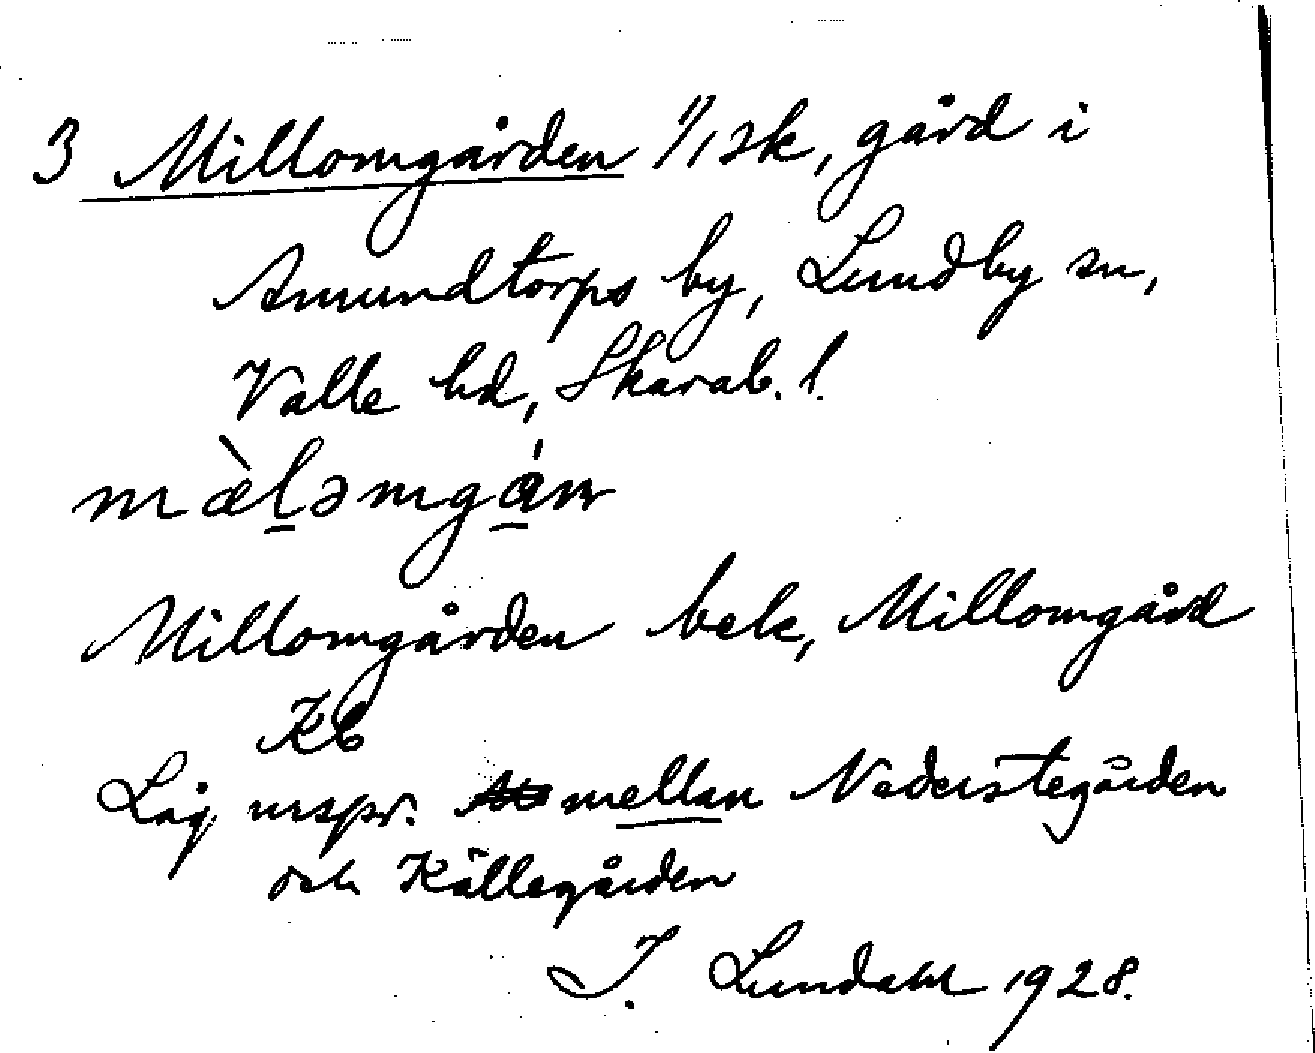 3 Millomgården 1/1 sk, gård i
Amundtorps by, Lundby sn,
Valle hd, Skarab. l.
mæ̀l̠əmgá̠ṇ
Millomgården bek, Millomgård
Kb
Låg urspr. mellan Nederstegården
och Källegården
I. Lundahl 1928.